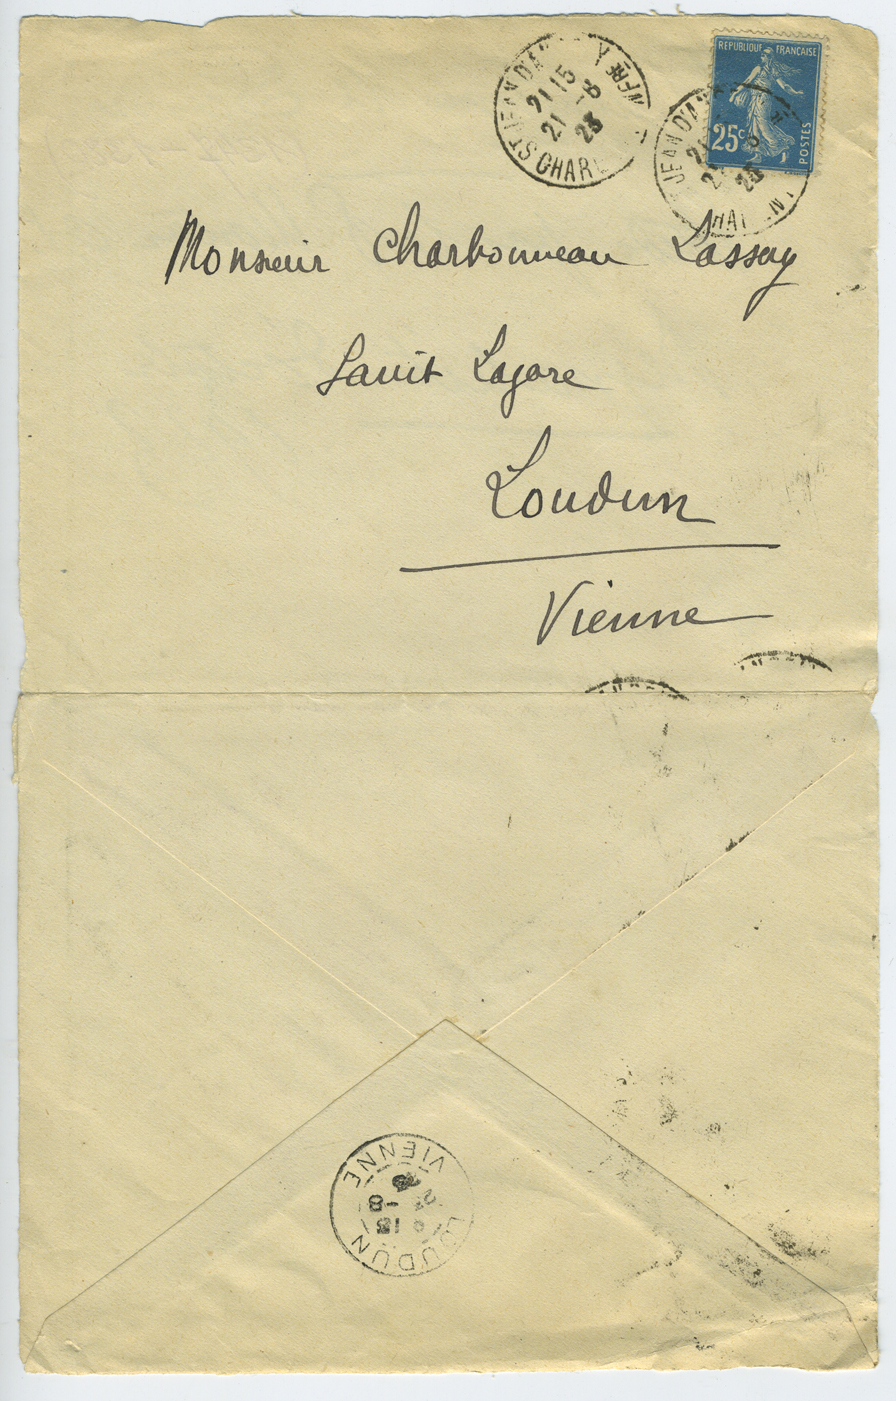 ST JEAN D'AN Y
21 15
21 -8
23
CHAR NFRE A
REPUBLIQUE FRANÇAISE
25c
POSTES
JEAN D'AN
21
2
23
HAR N
Monsieur Charbonneau Lassay
Saint Lazare
Loudun
Vienne
LOUDUN
13
-8
23
VIENNE